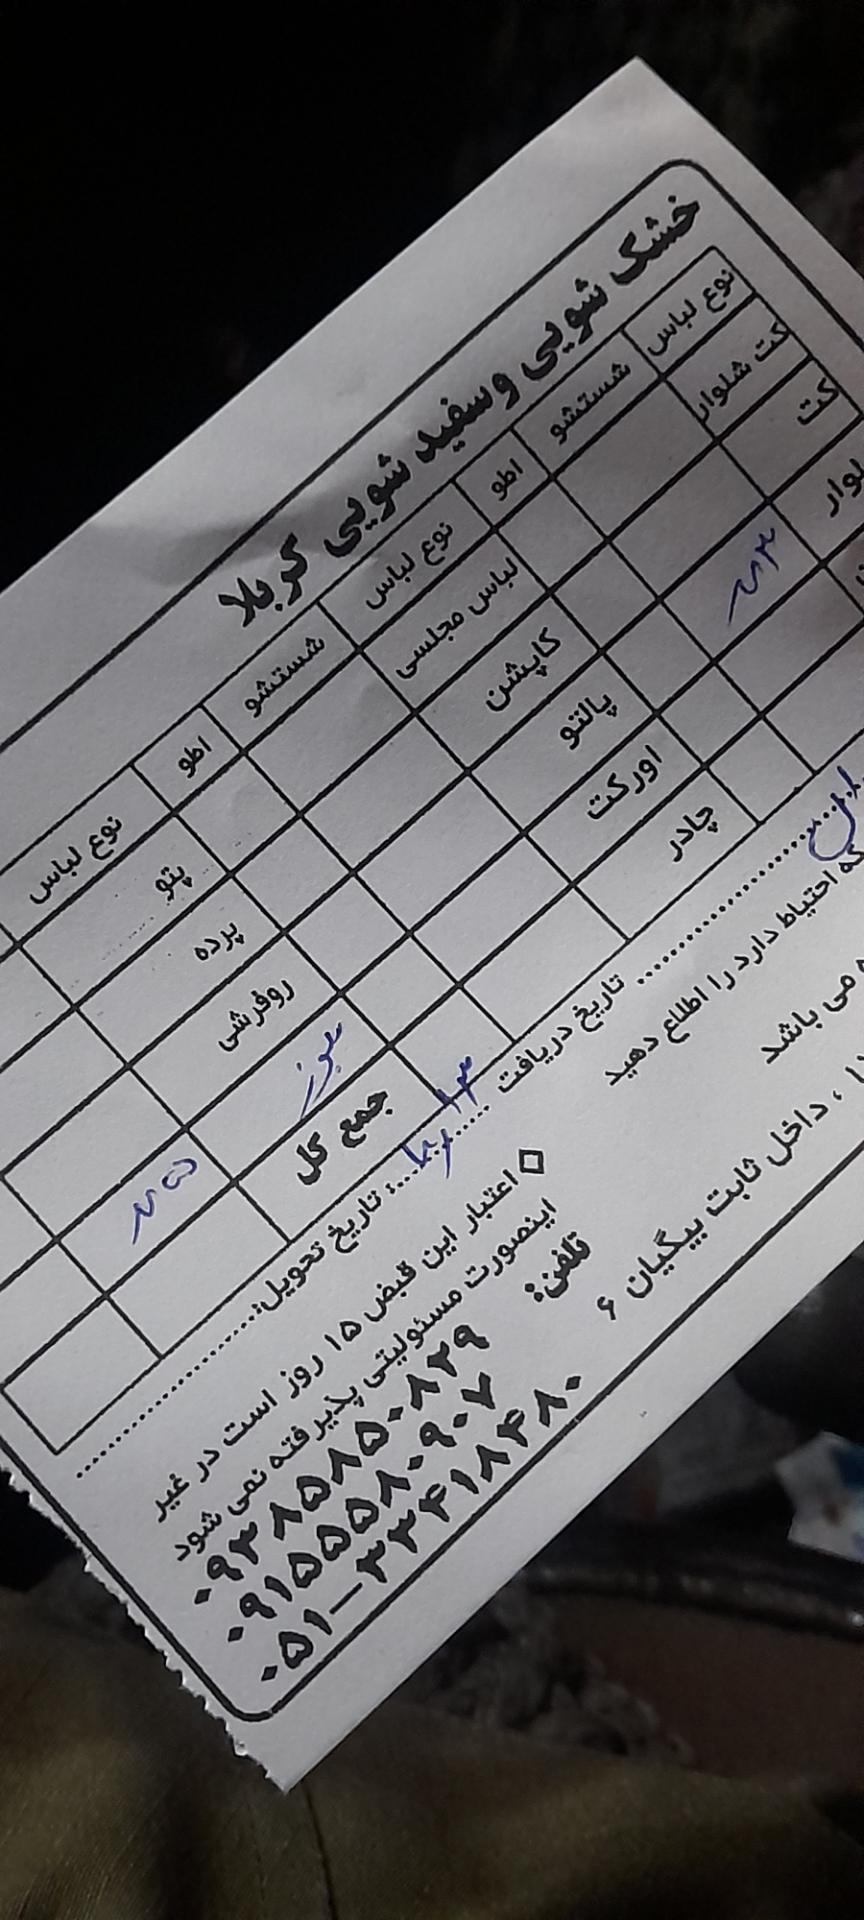 خشک شویی و سفید شویی کربلا
نوع لباس شستشو اطو نوع لباس شستشو اطو نوع لباس
کت شلوار لباس مجلسی پتو
کت کاپشن پرده
پالتو روفرشی
اورکت
چادر جمع کل
تاریخ دریافت تاریخ تحویل:
که احتیاط دارد را اطلاع دهید
◇ اعتبار این قبض ۱۵ روز است در غیر
می باشد
اینصورت مسئولیتی پذیرفته نمی شود
تلفن:
۰۹۳۸۵۸۵۰۸۲۹
۰۹۱۵۵۵۸۰۹۰۷
۰۵۱-۳۳۴۱۸۴۸۰
، داخل ثابت بیگیان ۶